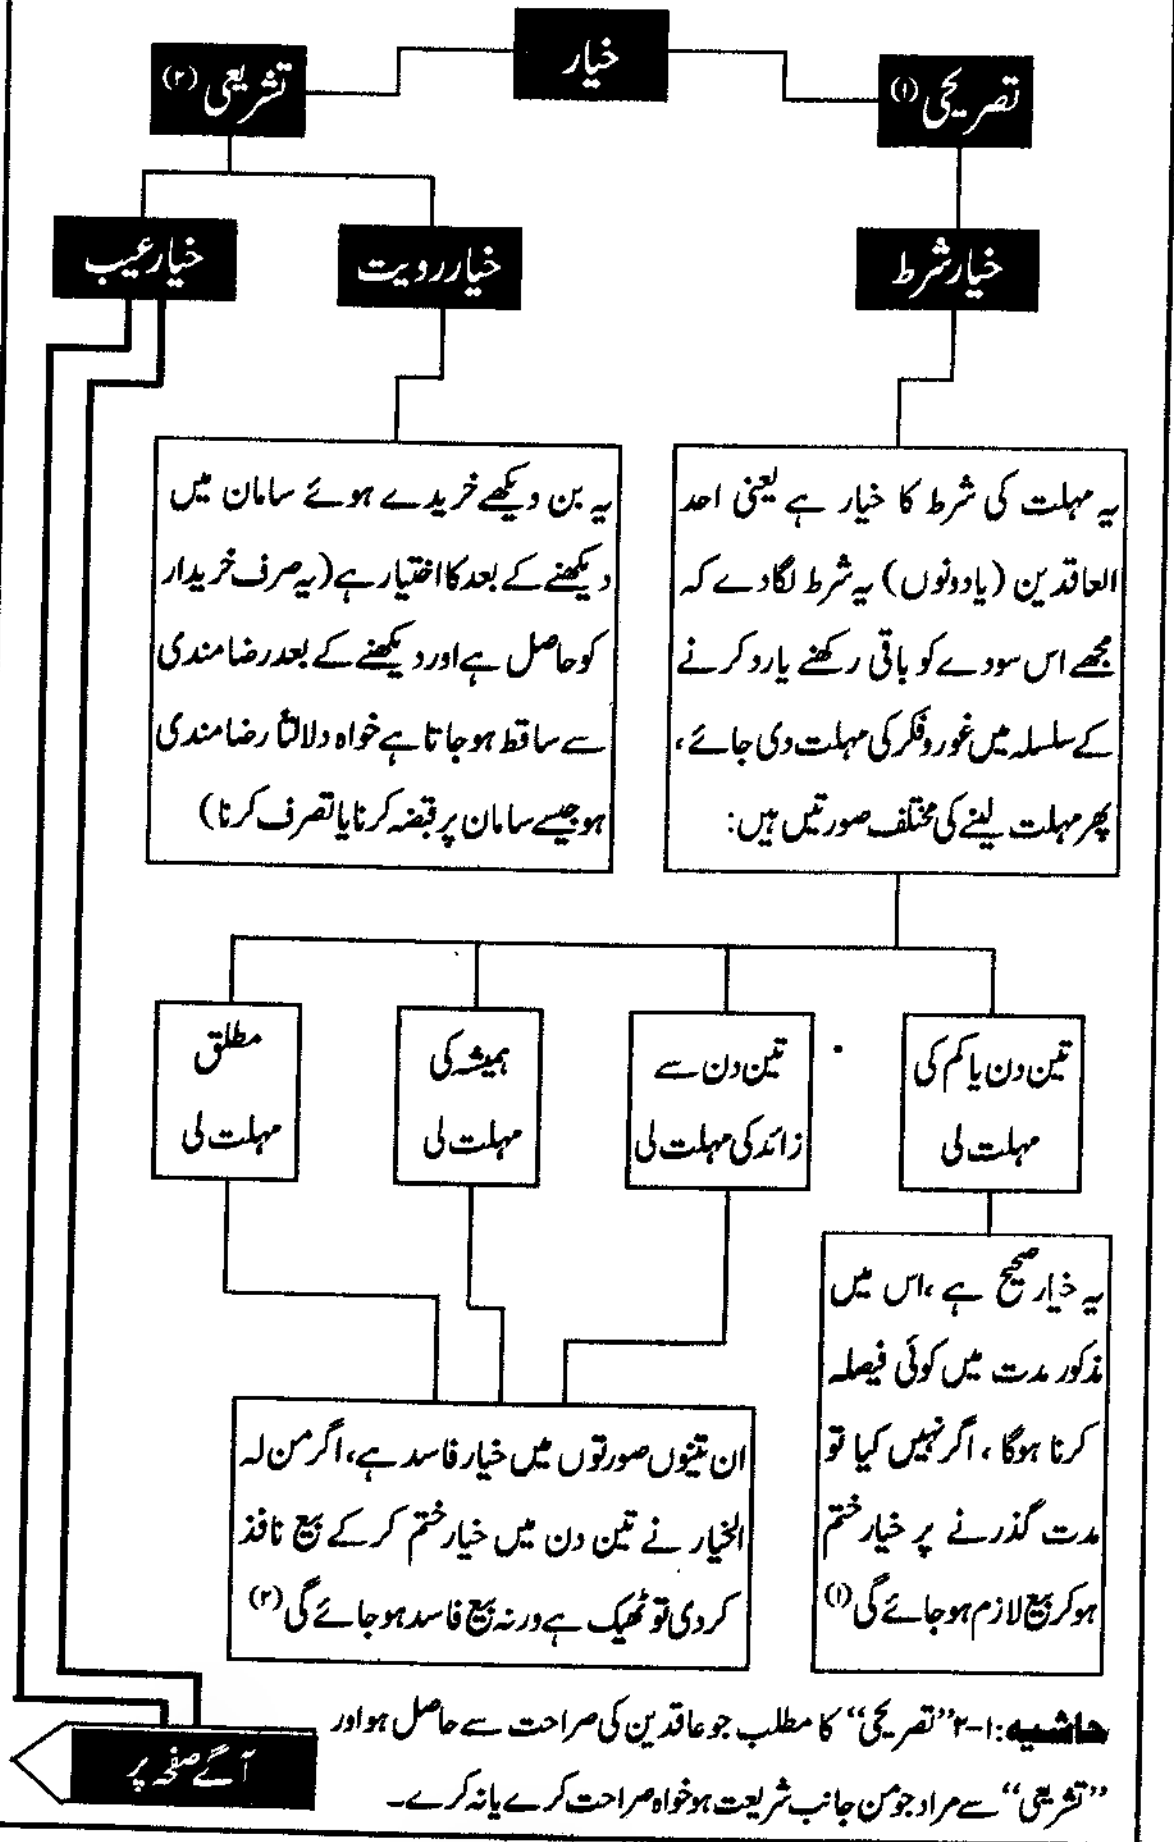 خیار
تصریحی (۱)
تشریعی (۲)
خیار شرط
خیار رویت
خیار عیب
یہ مہلت کی شرط کا خیار ہے یعنی احد
العاقدین (یا دونوں) یہ شرط لگا دے کہ
مجھے اس سودے کو باقی رکھنے یا رد کرنے
کے سلسلہ میں غور و فکر کی مہلت دی جائے،
پھر مہلت لینے کی مختلف صورتیں ہیں:
یہ بن دیکھے خریدے ہوئے سامان میں
دیکھنے کے بعد کا اختیار ہے (یہ صرف خریدار
کو حاصل ہے اور دیکھنے کے بعد رضامندی
سے ساقط ہو جاتا ہے خواہ دلالتاً رضامندی
ہو جیسے سامان پر قبضہ کرنا یا تصرف کرنا)
تین دن یا کم کی
مہلت لی
تین دن سے
زائد کی مہلت لی
ہمیشہ کی
مہلت لی
مطلق
مہلت لی
یہ خیار صحیح ہے، اس میں
مذکور مدت میں کوئی فیصلہ
کرنا ہوگا، اگر نہیں کیا تو
مدت گذرنے پر خیار ختم
ہو کر بیع لازم ہو جائے گی (۱)
ان تینوں صورتوں میں خیار فاسد ہے، اگر من لہ
الخیار نے تین دن میں خیار ختم کر کے بیع نافذ
کر دی تو ٹھیک ہے ورنہ بیع فاسد ہو جائے گی (۲)
حاشیہ: ۱-۲ "تصریحی" کا مطلب جو عاقدین کی صراحت سے حاصل ہو اور
"تشریعی" سے مراد جو من جانب شریعت ہو خواہ صراحت کرے یا نہ کرے۔
آگے صفحہ پر